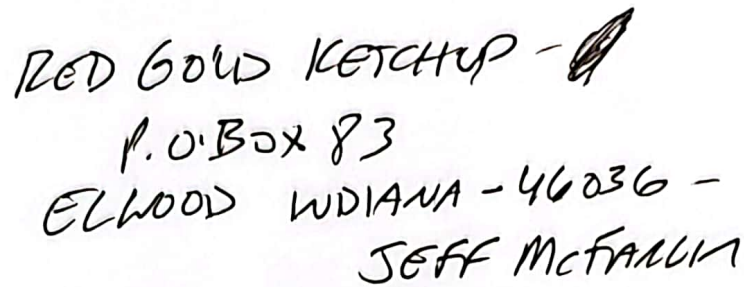 RED GOLD KETCHUP -
P.O. BOX 83
ELWOOD INDIANA - 46036 -
JEFF McFARLIN